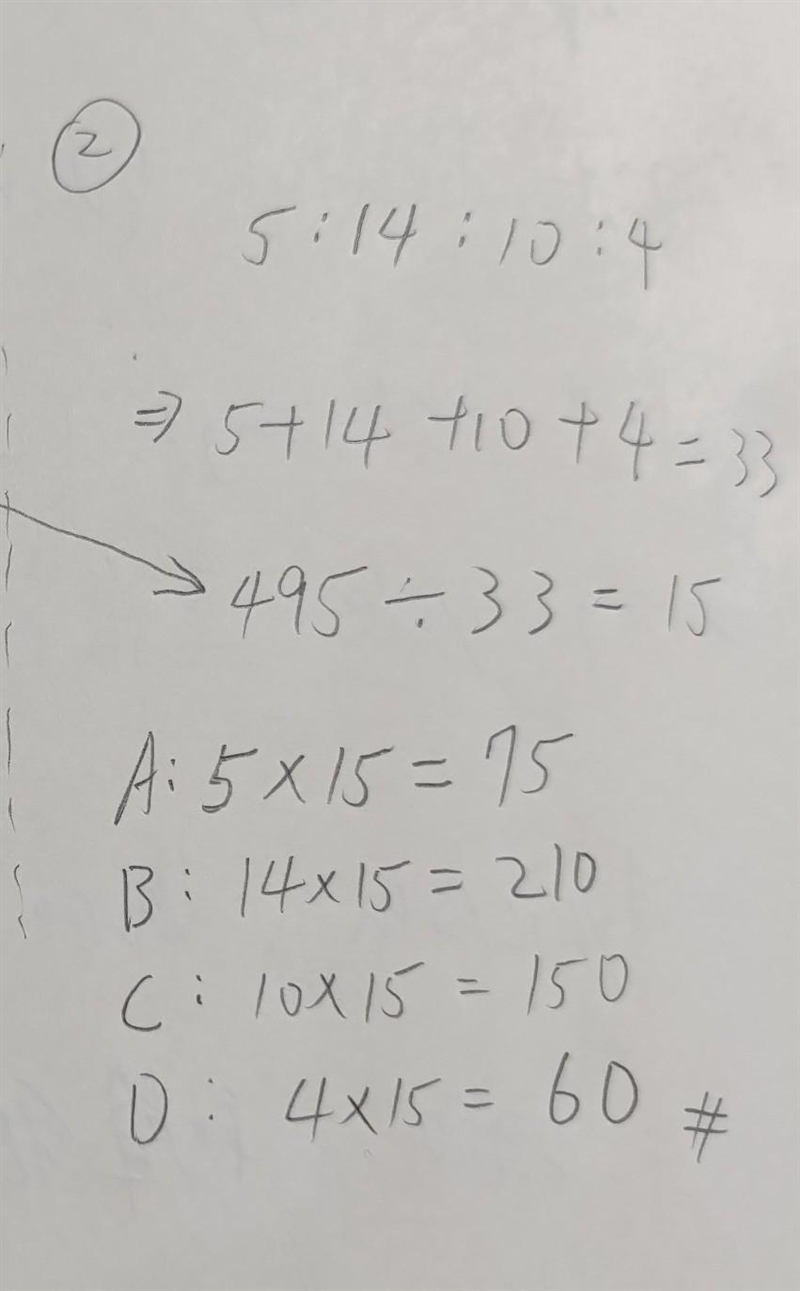 ②
5:14:10:4
⇒ 5+14+10+4=33
→ 495÷33=15
A: 5×15=75
B: 14×15=210
C: 10×15=150
D: 4×15=60 #